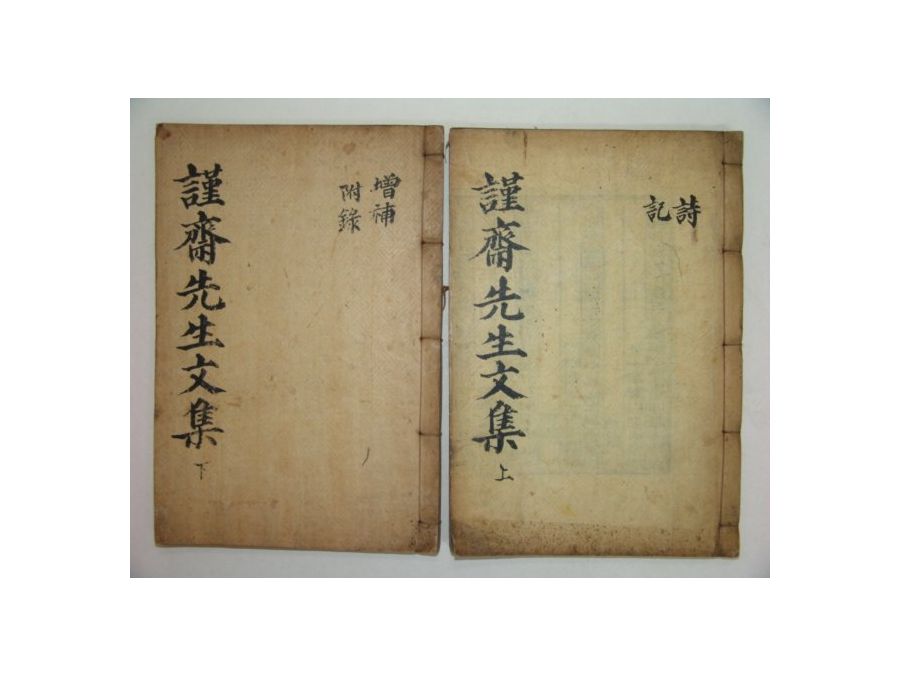 詩
記
謹齋先生文集
上
增補
附錄
謹齋先生文集
下